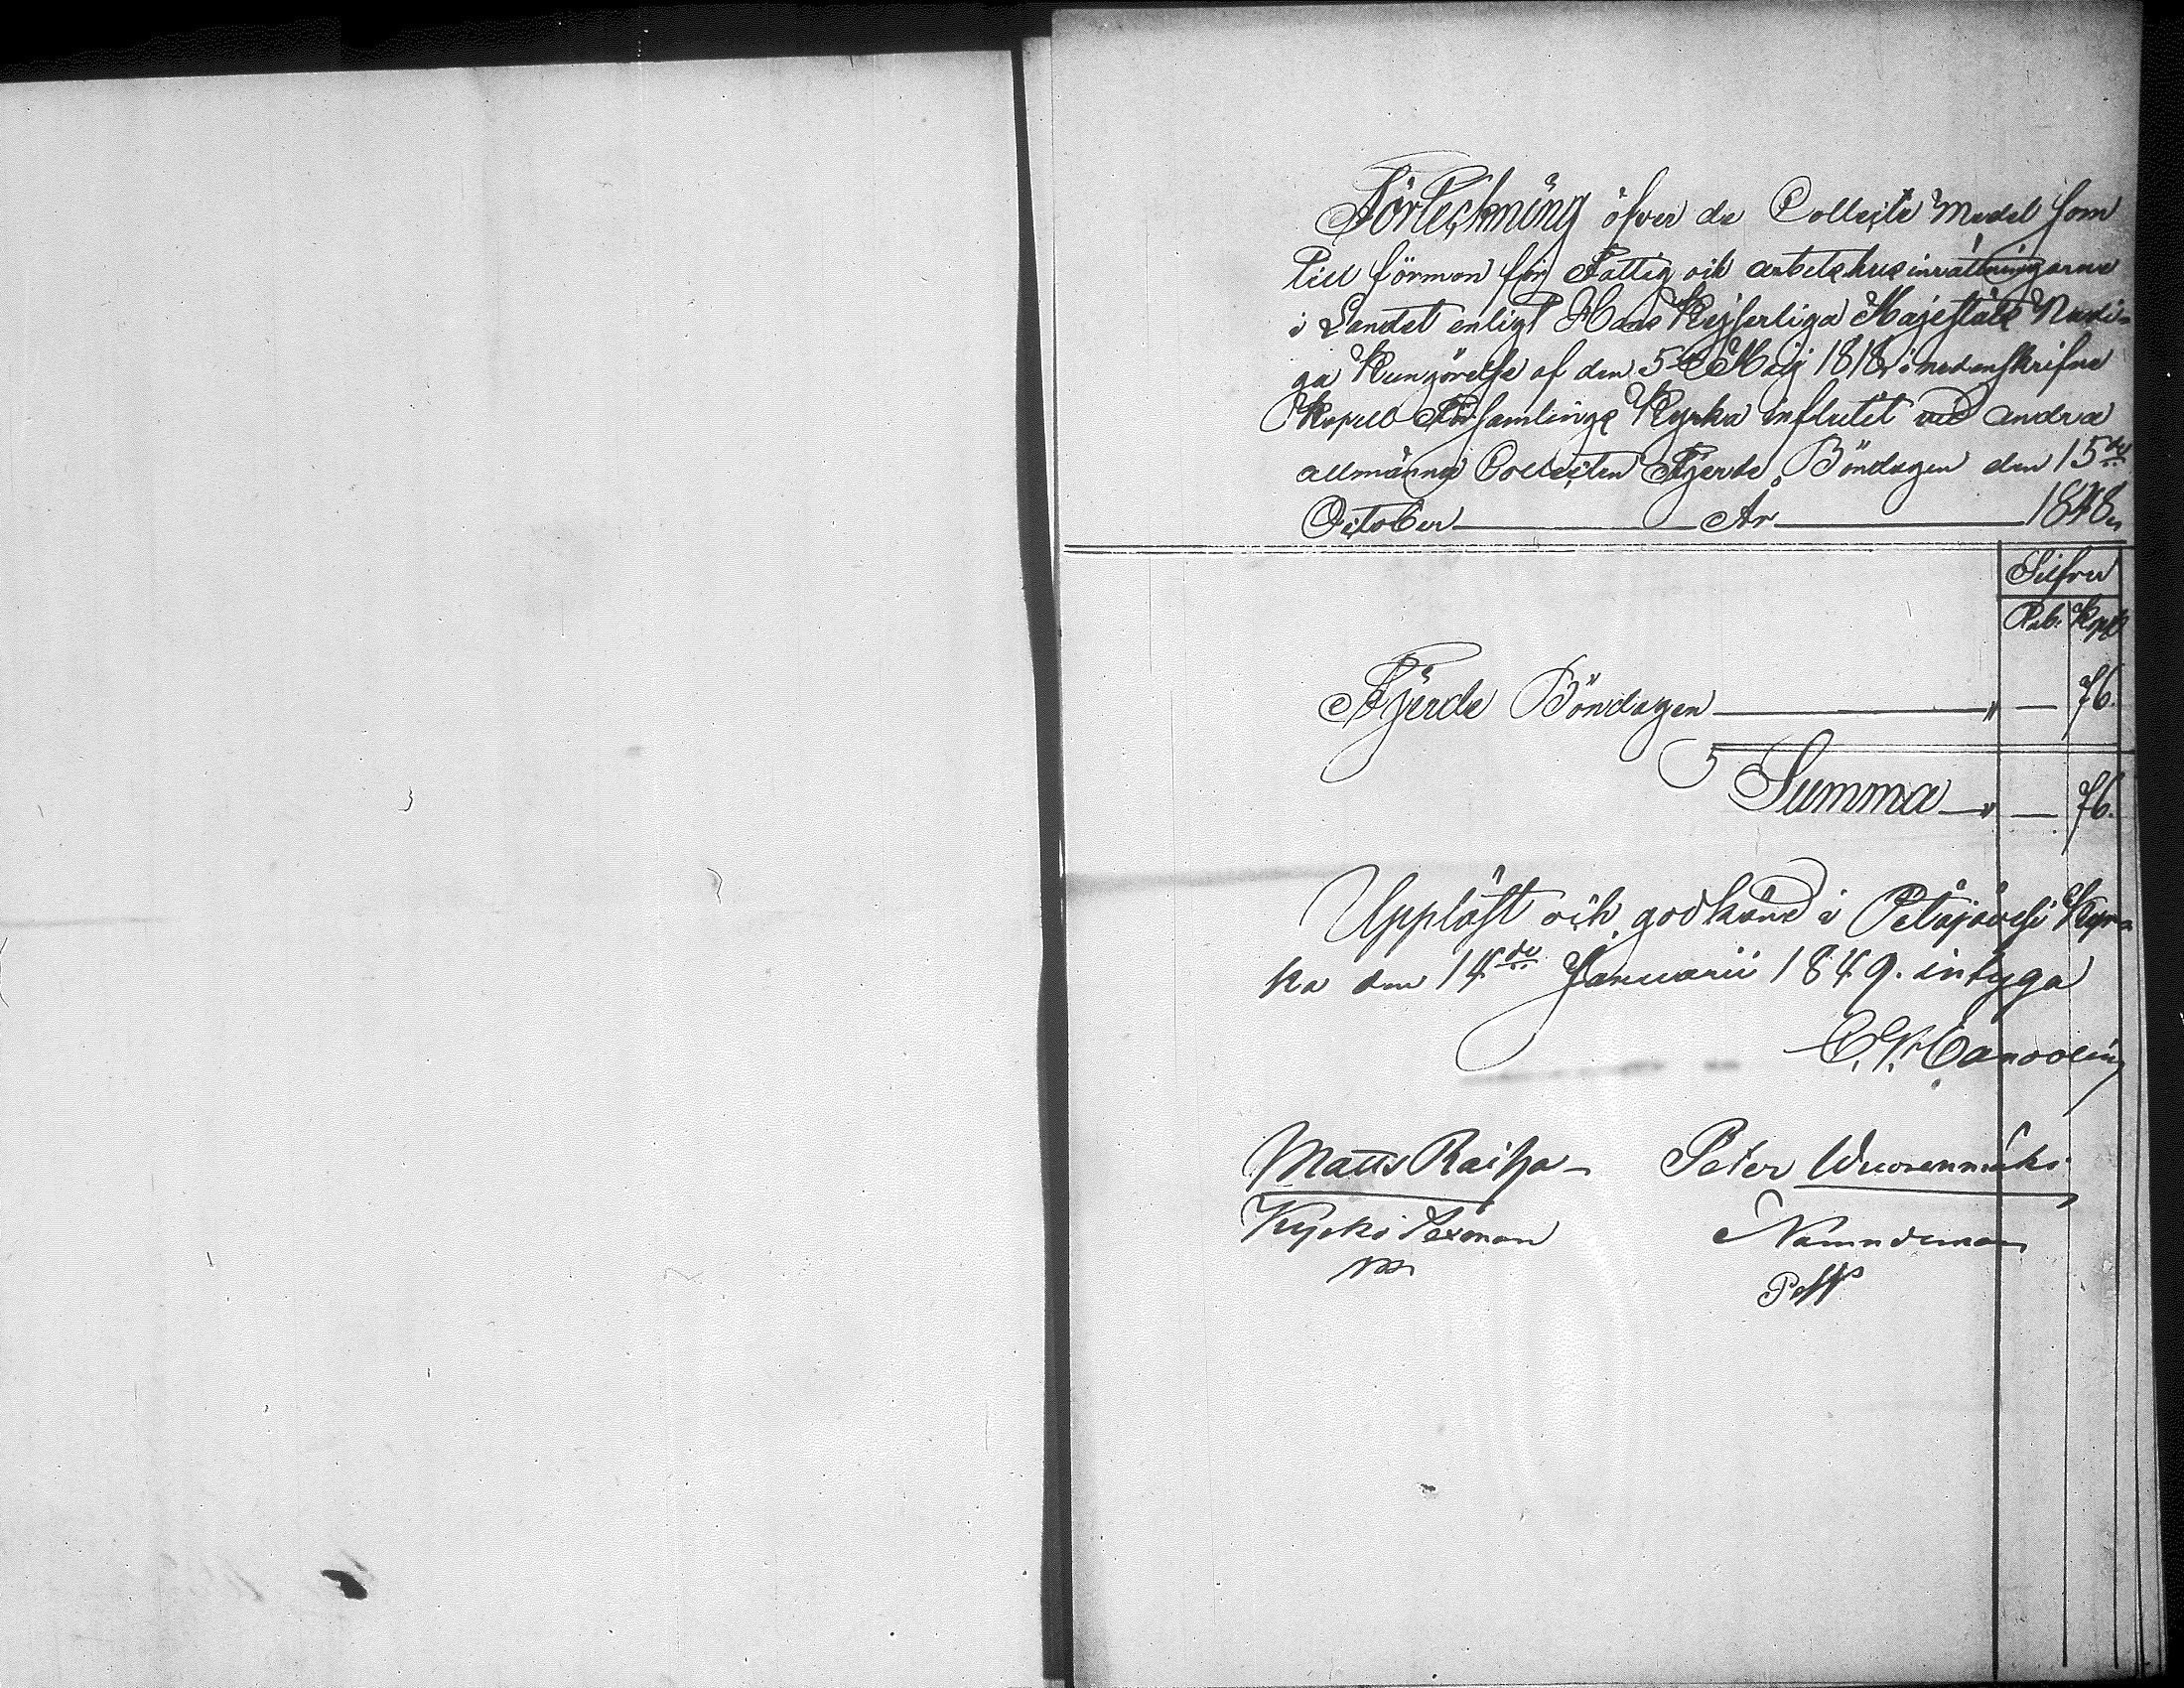 Förteckning öfver de Collecte Medel som
till förmon för Fattig och arbetshusinrättningarne
i Landet enligt Hans Kejserliga Majestäts Nådi-
ga Kungörelse af den 5te Maij 1818, i nedanskrifne
Kapell Församlings Kyrka influtit vid andra
allmänna Collecten Fjerde Böndagen den 15de
October År 1848,,
Silfver
Rub. Kop.
Fjerde Böndagen " — 76.
Summa " — 76.
Uppläst och godkänd i Petäjävesi Kyr-
ka den 14de Januarii 1849. intyga
Matts Raiha
Peter Wuorenmäki
Kyrko Sexman
Nämndeman